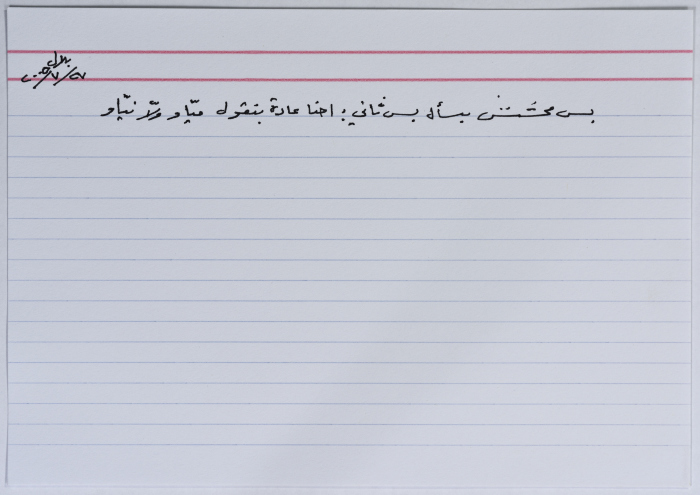 بلال
بس محشّش بيسأل بس ثاني: احنا عادة بنقول ميّاو ولّا نيّاو